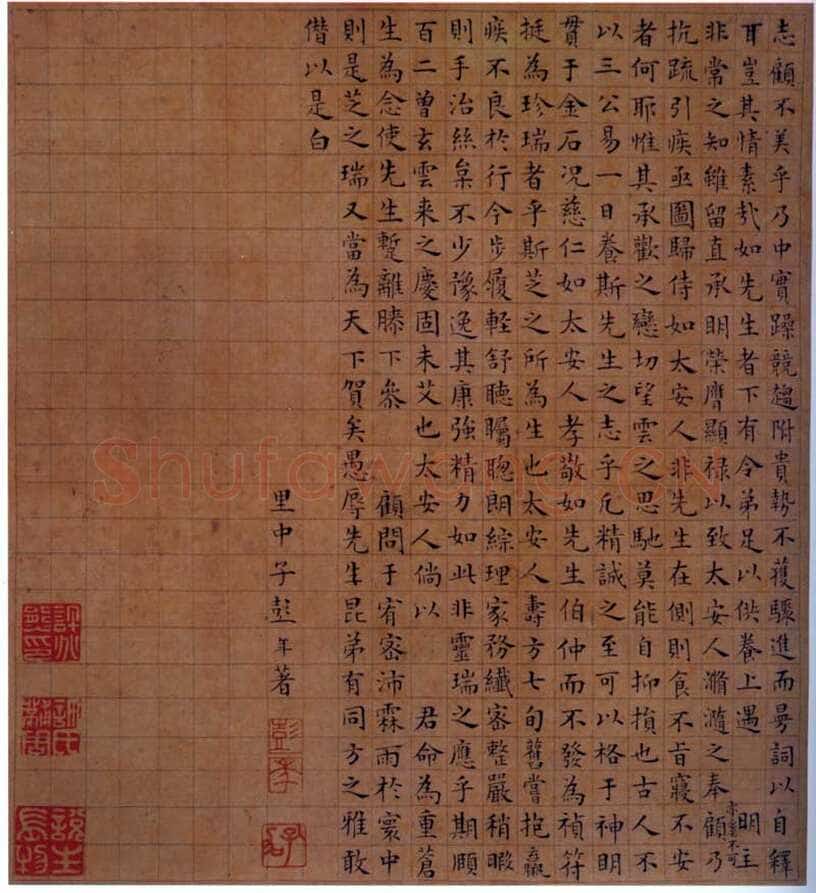 志顧不美乎乃中實躁競趨附貴勢不獲驟進而晷詞以自釋
耳豈其情素哉如先生者下有令弟足以供養上遇 明主
非常之知雖留直承明榮膺顯祿以致太安人滫瀡之奉亦無不可顧乃
抗疏引疾亟圖歸侍如太安人非先生在側則食不旨寢不安
者何耶惟其承歡之戀切望雲之思馳莫能自抑損也古人不
以三公易一日養斯先生之志乎凢精誠之至可以格于神明
貫于金石况慈仁如太安人孝敬如先生伯仲而不發為禎符
挺為珍瑞者乎斯芝之所為生也太安人壽方七旬舊嘗抱羸
疾不良於行今步履輕舒聴矚聰朗綜理家務纖審整嚴稍暇
則手治絲枲不少豫逸其康強精力如此非靈瑞之應乎期頤
百二曾玄雲来之慶固未艾也太安人倘以 君命為重蒼
生為念使先生蹔離膝下叅 顧問于宥密沛霖雨於寰中
則是芝之瑞又當為天下賀矣愚辱先生昆弟有同方之雅敢
僣以是白
里中子彭年著
彭年
Shufawang.cn